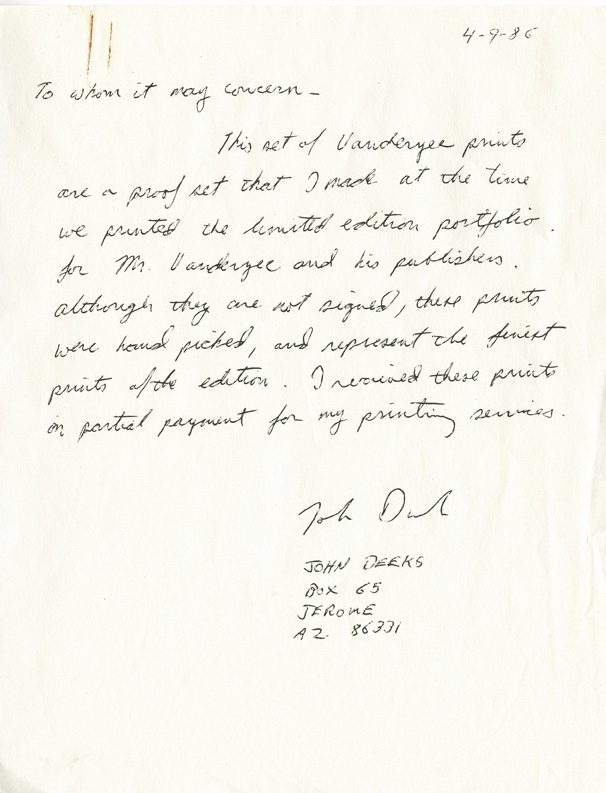 4-9-86
To whom it may concern -
This set of Vanderzee prints
are a proof set that I made at the time
we printed the limited edition portfolio.
for Mr. Vanderzee and his publishers.
although they are not signed, these prints
were hand picked, and represent the finest
prints of the edition. I received these prints
in partial payment for my printing services.
John Deeks
JOHN DEEKS
BOX 65
JEROME
AZ. 86331